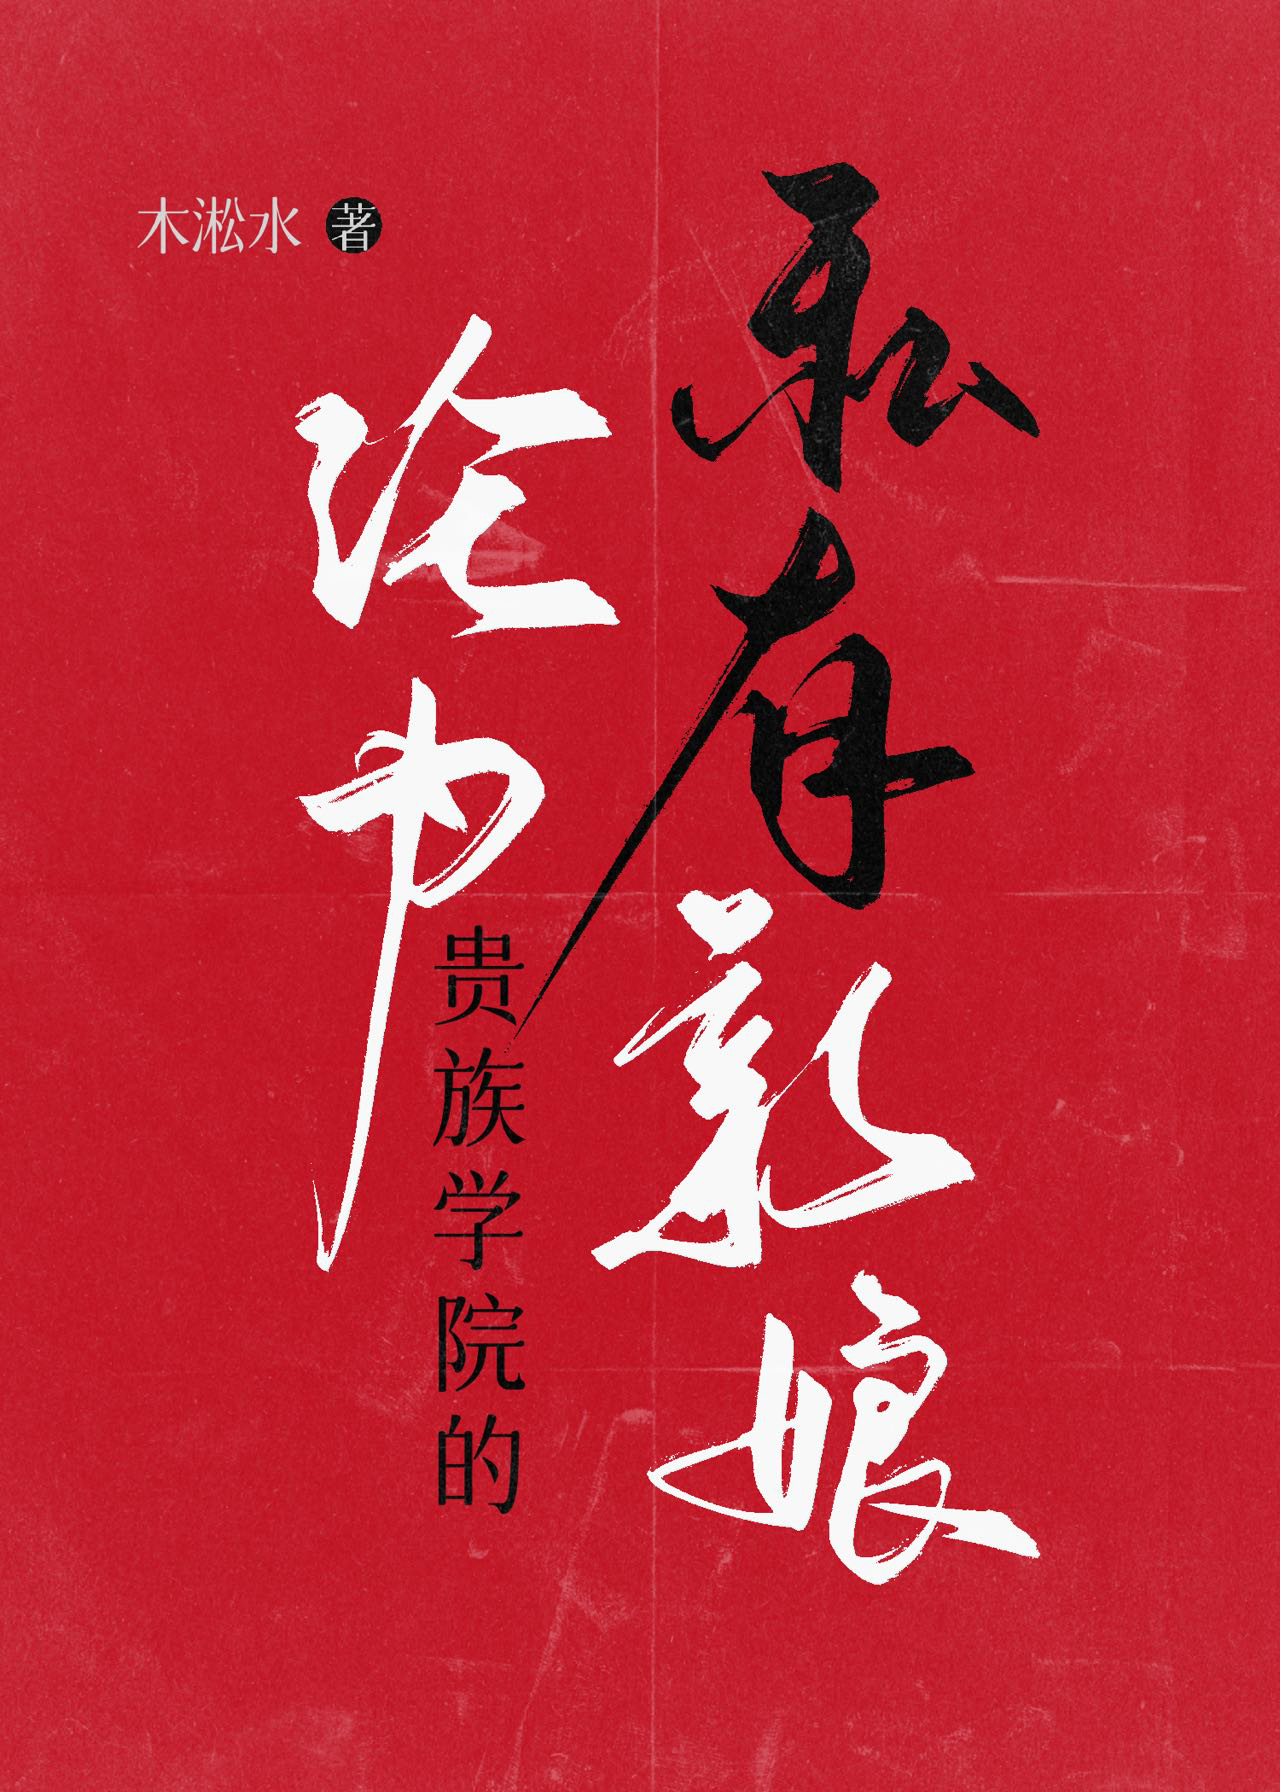 木淞水 著
沦为
贵族学院的
私有新娘